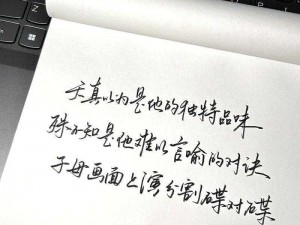 天真以为是他的独特品味
殊不知是他难以言喻的对决
子母画面上演分割碟对碟